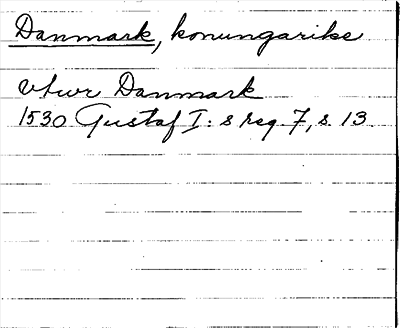 Danmark, konungarike
vtwr Danmark
1530 Gustaf I: s reg. 7, s. 13